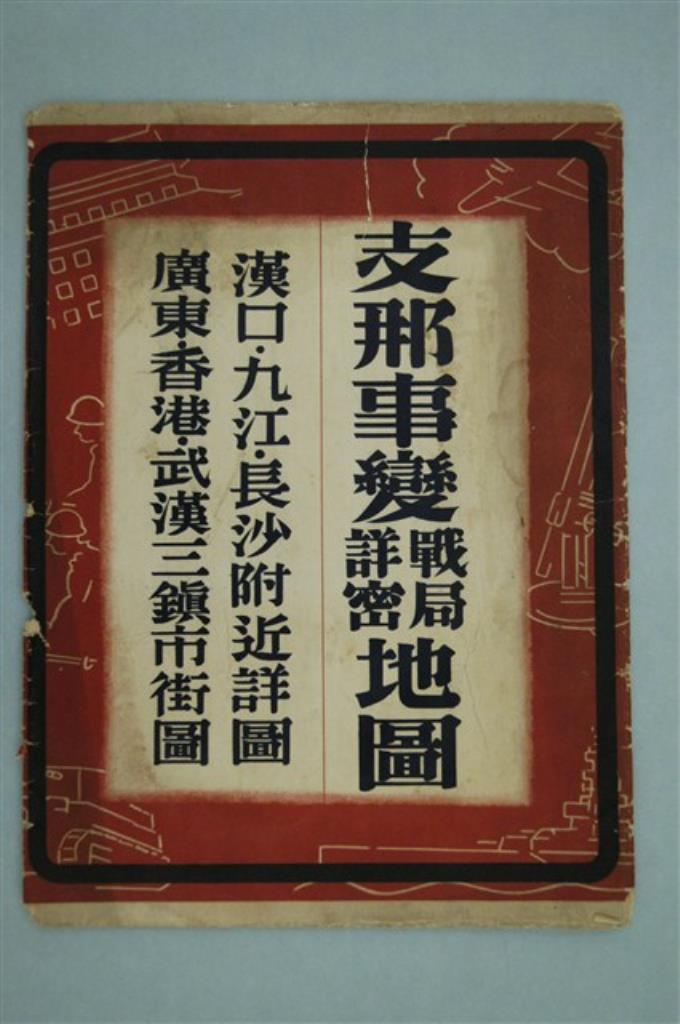 支那事變戰局詳密地圖
漢口·九江·長沙附近詳圖
廣東·香港·武漢三鎭市街圖